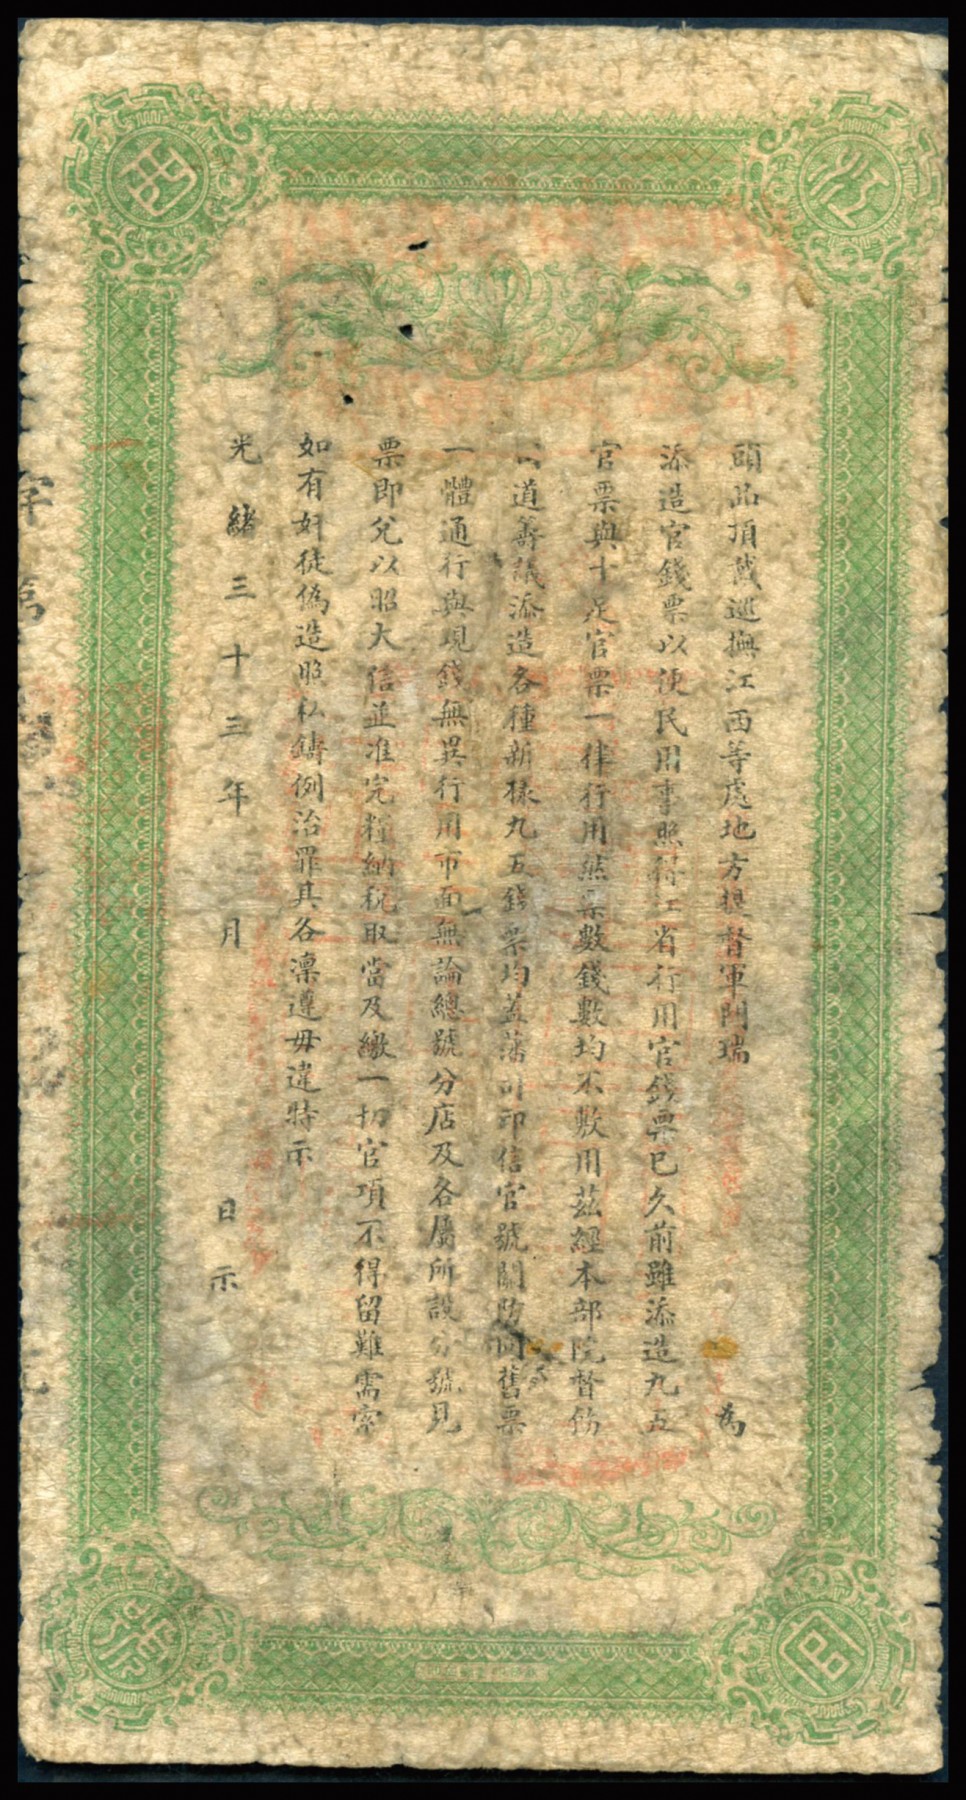 江西官號
頭品頂戴巡撫江西等處地方提督軍門瑞 為
添造官錢票以便民用事照得江省行用官錢票已久前雖添造九五
官票與十足官票一律行用然票數錢數均不敷用茲經本部院督飭
道籌議添造各種新樣九五錢票均蓋藩司印信官號關防同舊票
一體通行與現錢無異行用市面無論總號分店及各屬所設分號見
票即兌以昭大信並准完糧納稅取當及繳一切官項不得留難需索
如有奸徒偽造照私鑄例治罪其各凜遵毋違特示
光緒三十三年 月 日示
字 第